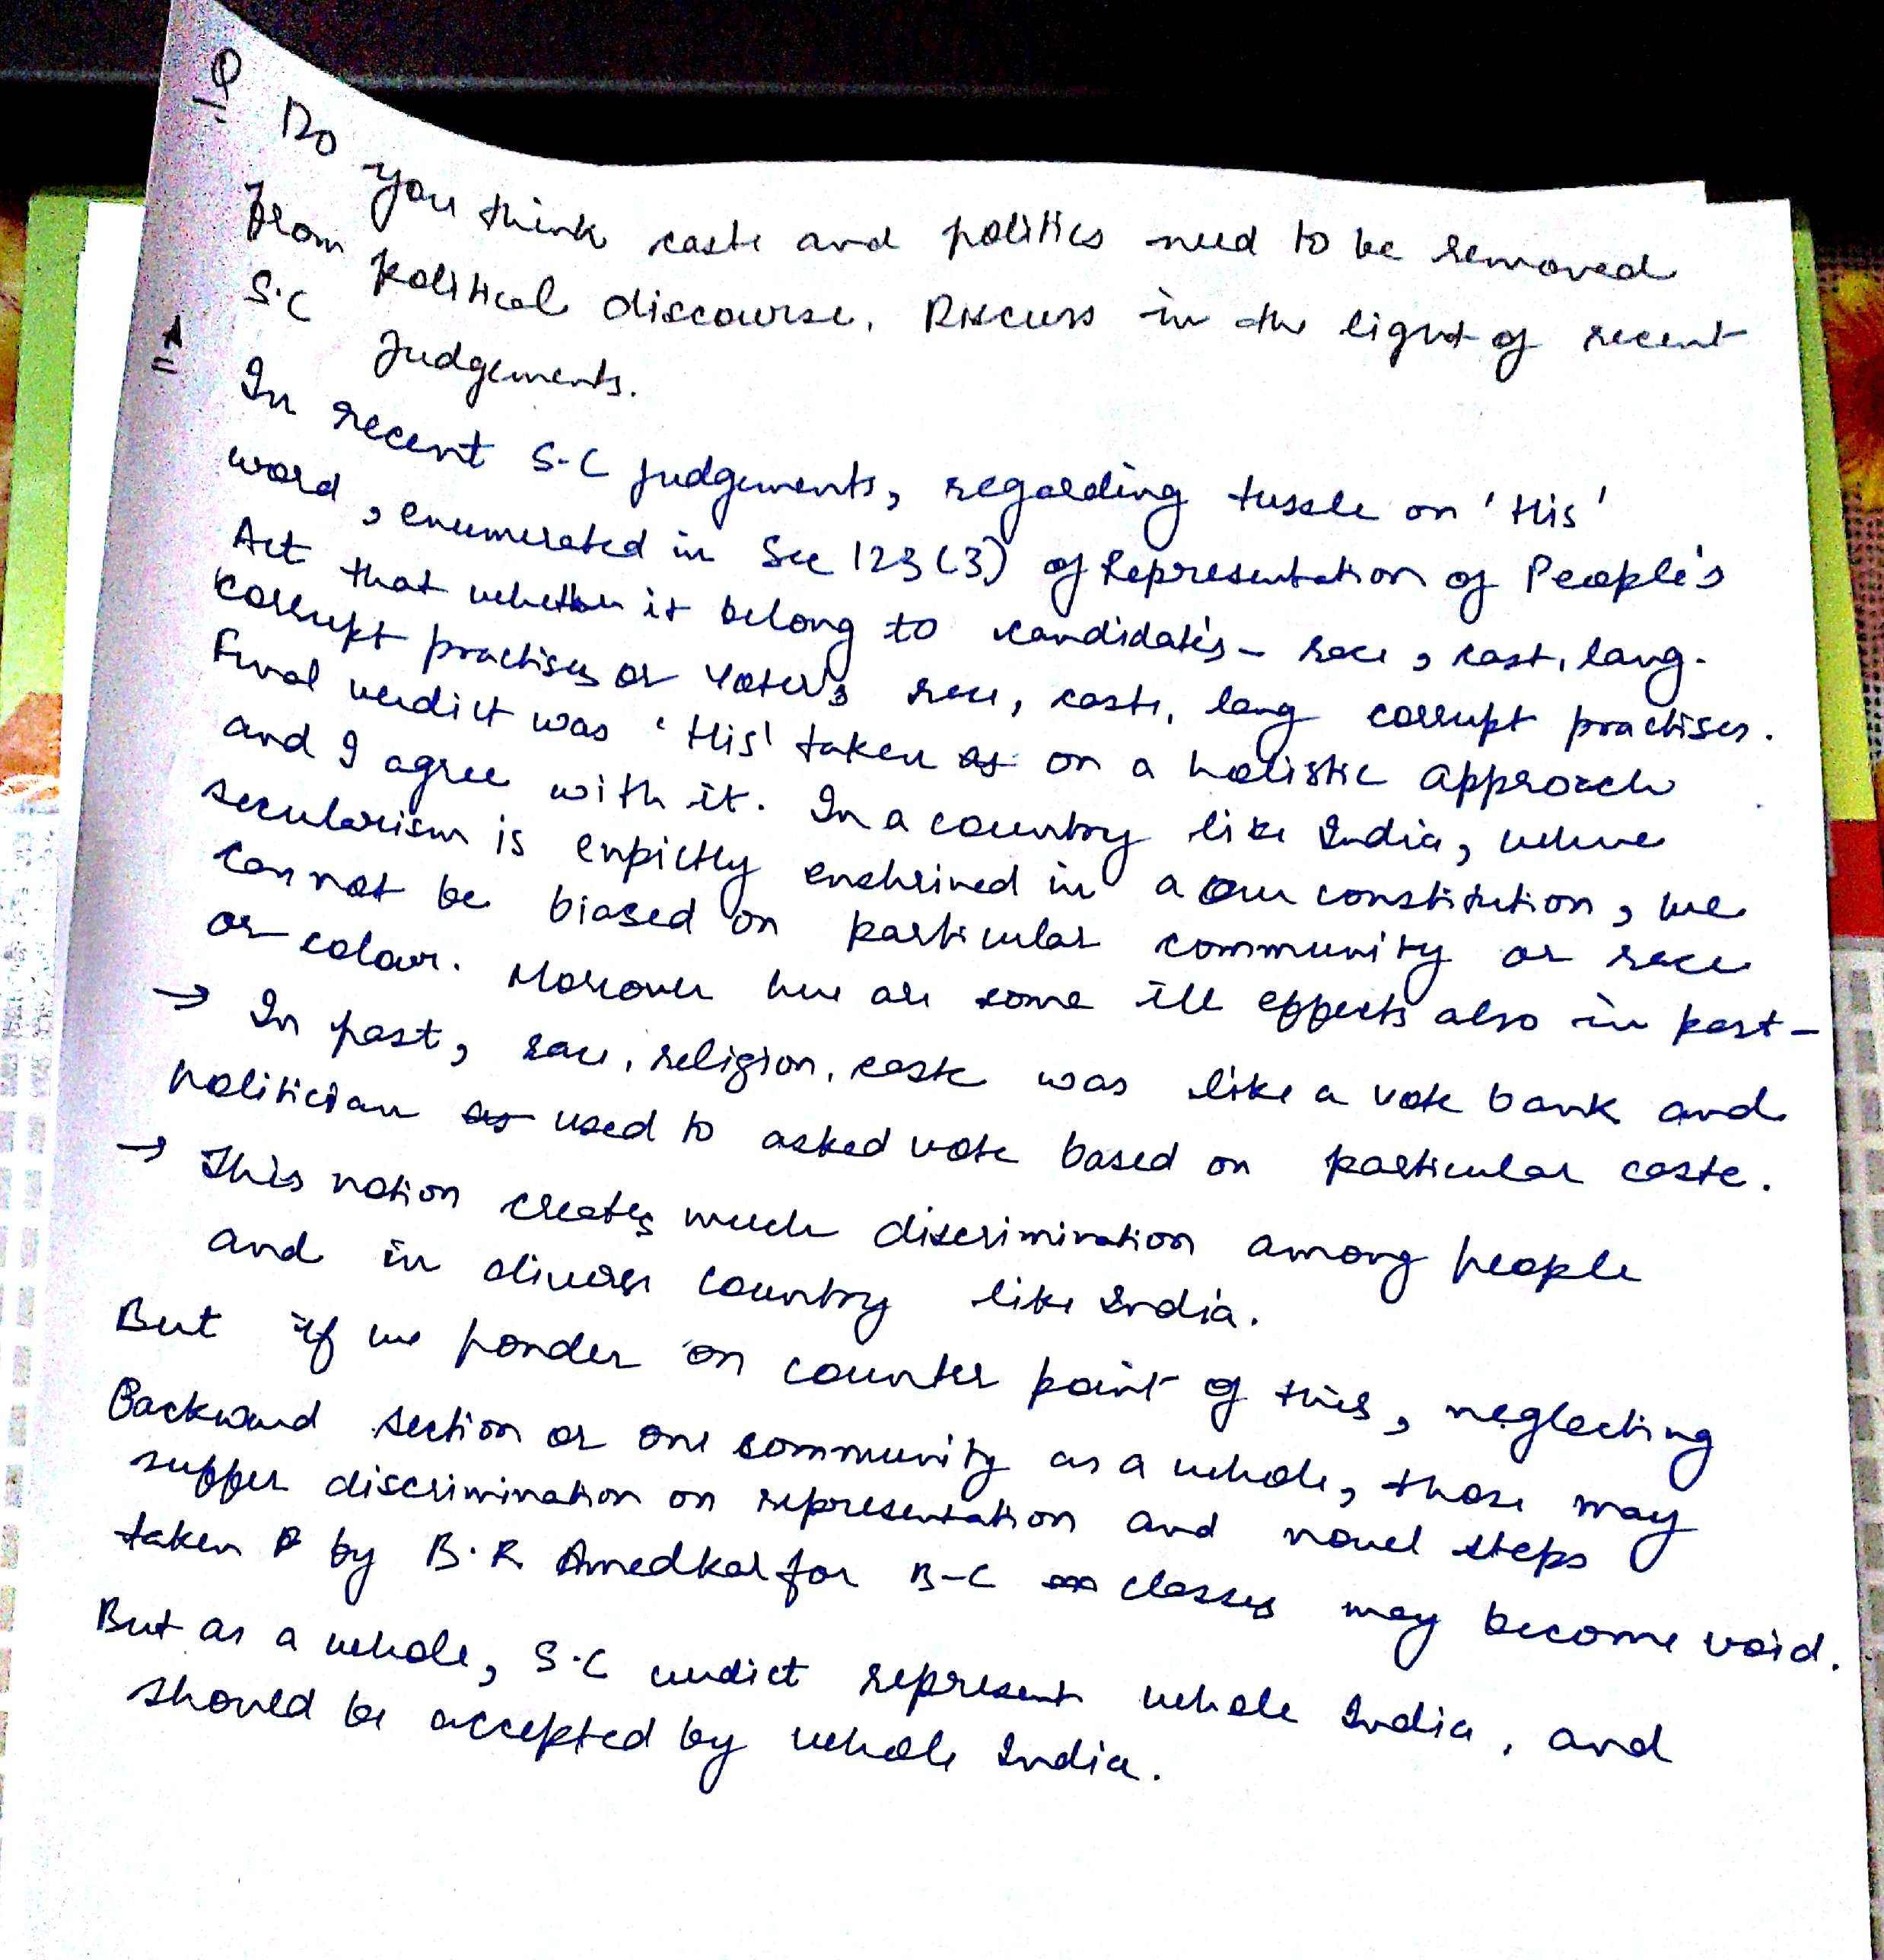 Q Do you think caste and politics need to be removed
from political discourse. Discuss in the light of recent
S.C Judgements.
A In recent S.C judgements, regarding tussle on 'His'
word, enumerated in Sec 123(3) of Representation of People's
Act that whether it belong to candidate's - race, cast, lang.
corrupt practises or voter's race, caste, lang corrupt practises.
Final verdict was 'His' taken as on a holistic approach
and I agree with it. In a country like India, where
secularism is enpictly enshrined in a our constitution, we
can not be biased on particular community or race
or colour. Moreover here are some ill effects also in past-
→ In past, race, religion, caste was like a vote bank and
politician as used to asked vote based on particular caste.
→ This notion creates much discrimination among people
and in diverse country like India.
But if we ponder on counter point of this, neglecting
Backward section or one community as a whole, those may
suffer discrimination on representation and novel steps
taken by B.R Amedkar for B-C classes may become void.
But as a whole, S.C verdict represent whole India, and
should be accepted by whole India.